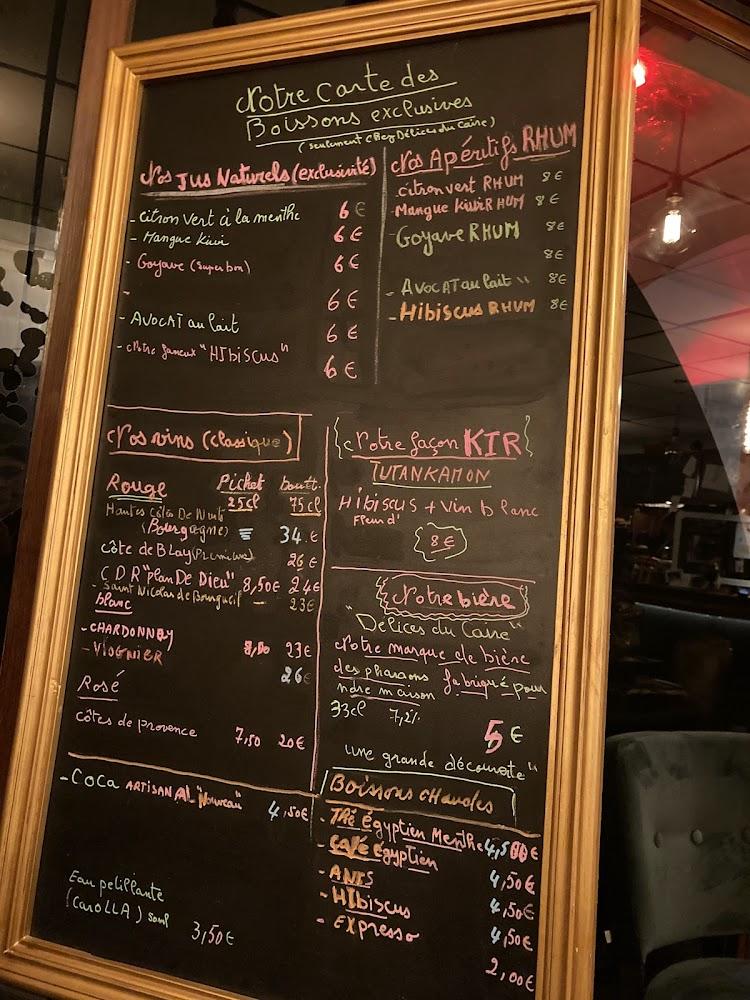 Notre carte des
Boissons exclusives
(seulement chez Délices du Caire)
Nos Jus Naturels (exclusivité)
- Citron Vert à la menthe 6 €
- Mangue Kiwi 6 €
- Goyave (super bon) 6 €
- 6 €
- AVOCAT au lait 6 €
- Notre fameux "HIBiscus" 6 €
Nos Apéritifs RHUM
- citron vert RHUM 8 €
- Mangue kiwi RHUM 8 €
- Goyave RHUM 8 €
8 €
- AVOCAT au lait " 8 €
- Hibiscus RHUM 8 €
Nos vins (classique)
Rouge Pichet boutt.
25cl 75cl
Hautes Côtes De Nuits
(Bourgogne) 34 €
Côte de BLAY 26 €
C D R "plan De Dieu" 8,50€ 24€
- Saint Nicolas de Bourgueil — 23€
blanc
- CHARDONNAY 23€
- VIOGNIER 26
Rosé
Côtes de provence 7,50 20€
- COCA ARTISANAL "Nouveau" 4,50€
Eau petillante
(CAROLLA) 3,50€
Notre façon KIR
TUTANKAMON
Hibiscus + Vin blanc
Fleur d'
8 €
Notre bière
"Délices du Caire"
Notre marque de bière
des pharaons fabriqué pour
notre maison
33cl 7,2%
5 €
une grande découverte"
Boissons chaudes
- Thé égyptien Menthe 4,50€
- Café égyptien 4,50€
- ANIS 4,50€
- HIbiscus 4,50€
- EXpresso 2,00€